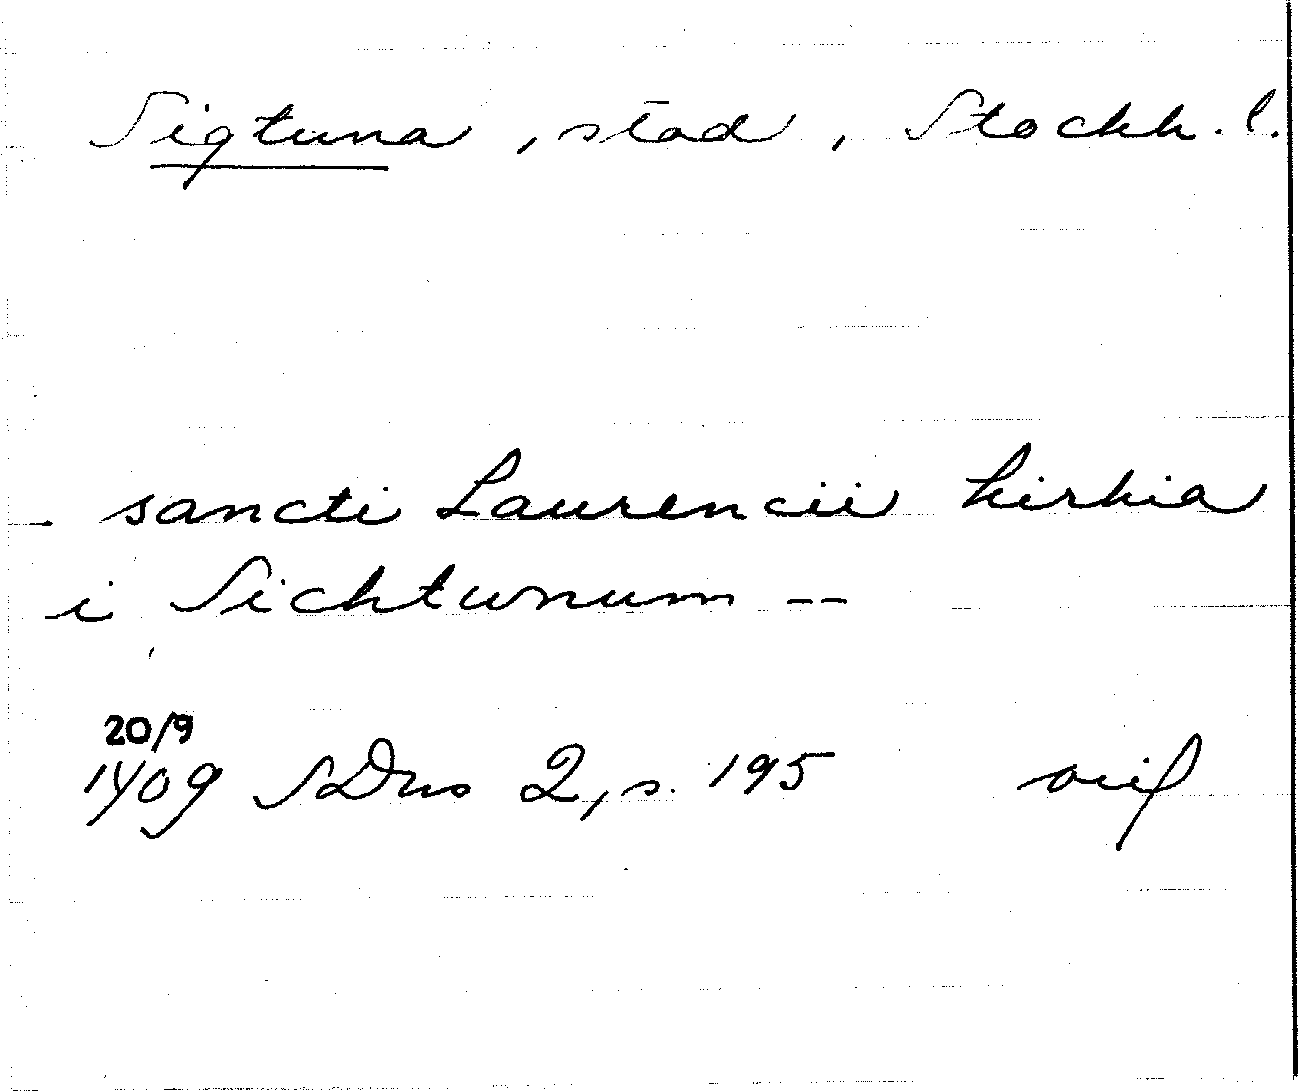 Sigtuna, stad, Stockh. l.
- sancti Laurencii kirkia
i Sichtunum --
20/9
1409 SDns 2, s. 195 avif